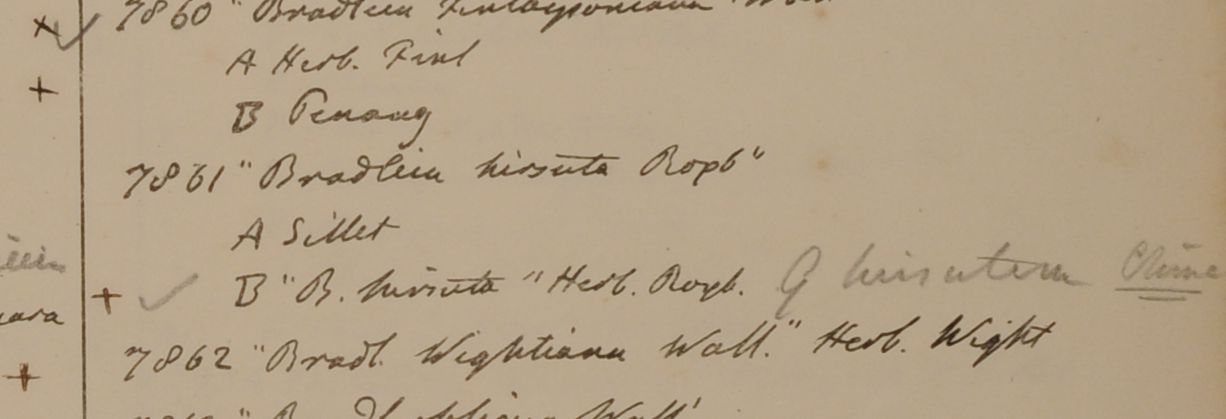 7860 "Bradleia Finlaysoniana Wall
A Herb. Finl
B Penang
7861 "Bradleia hirsuta Roxb"
A Sillet
B "B. hirsuta" Herb. Roxb. G hirsutum China
7862 "Bradl. Wightiana Wall." Herb. Wight